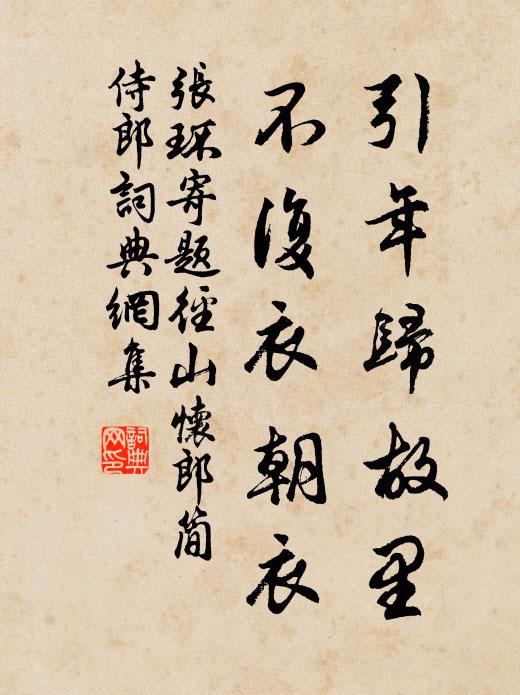 引年歸故里
不復衣朝衣
張環寄題徑山懷郎簡
侍郎詞典網集
詞典
网印